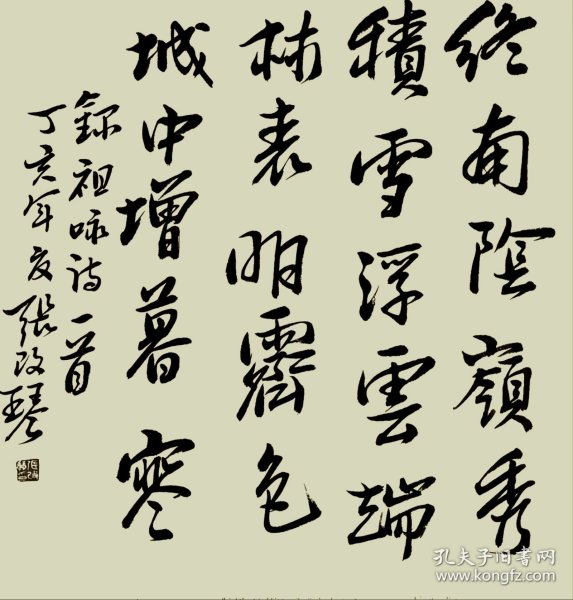 終南陰嶺秀
積雪浮雲端
林表明霽色
城中增暮寒
錄祖咏诗一首
丁亥年夏張改琴
孔夫子旧书网
www.kongfz.com